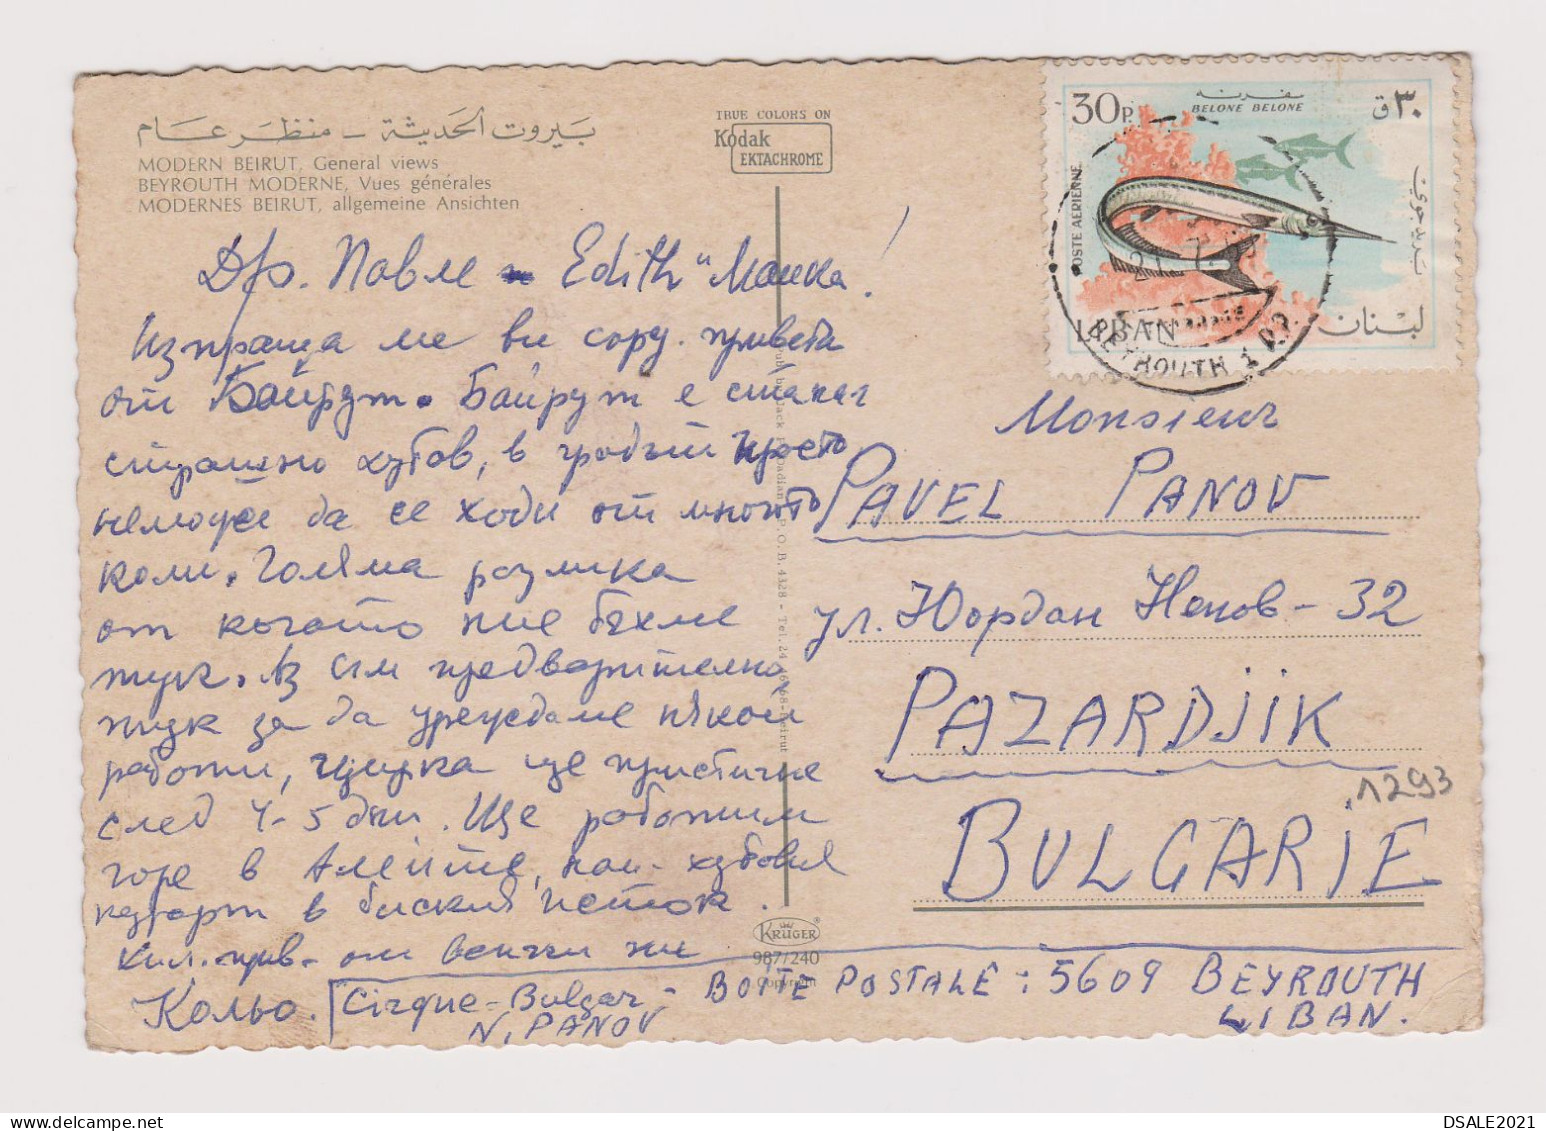 بيروت الحديثة - منظر عام
MODERN BEIRUT, General views
BEYROUTH MODERNE, Vues générales
MODERNES BEIRUT, allgemeine Ansichten
TRUE COLORS ON
Kodak
EKTACHROME
30P.
BELONE BELONE
٣٠ ق
POSTE AERIENNE
بريد جوي
LIBAN
لبنان
BEYROUTH
Др. Павле Edith Маика!
Изпраща ме ви сърд. привета
от Байрут. Байрут е станал
страшно хубов, в градът просто
неможе да се ходи от многото
коли. Голяма разлика
от когато ние бяхме
тук. Аз съм предварително
тук за да уреждаме някои
работи, цирка ще пристигне
след 4-5 дни. Ще работим
горе в Алеите, най-хубовия
курорт в близкия исток.
прив. от всички ни
Кольо.
Monsieur
PAVEL PANOV
ул. Юордан Ненов - 32
PAZARDJIK
BULGARIE
1293
Cirque-Bulgar - BOITE POSTALE: 5609 BEYROUTH
N. PANOV LIBAN.
KRÜGER
987/240
Copyright
DSALE2021